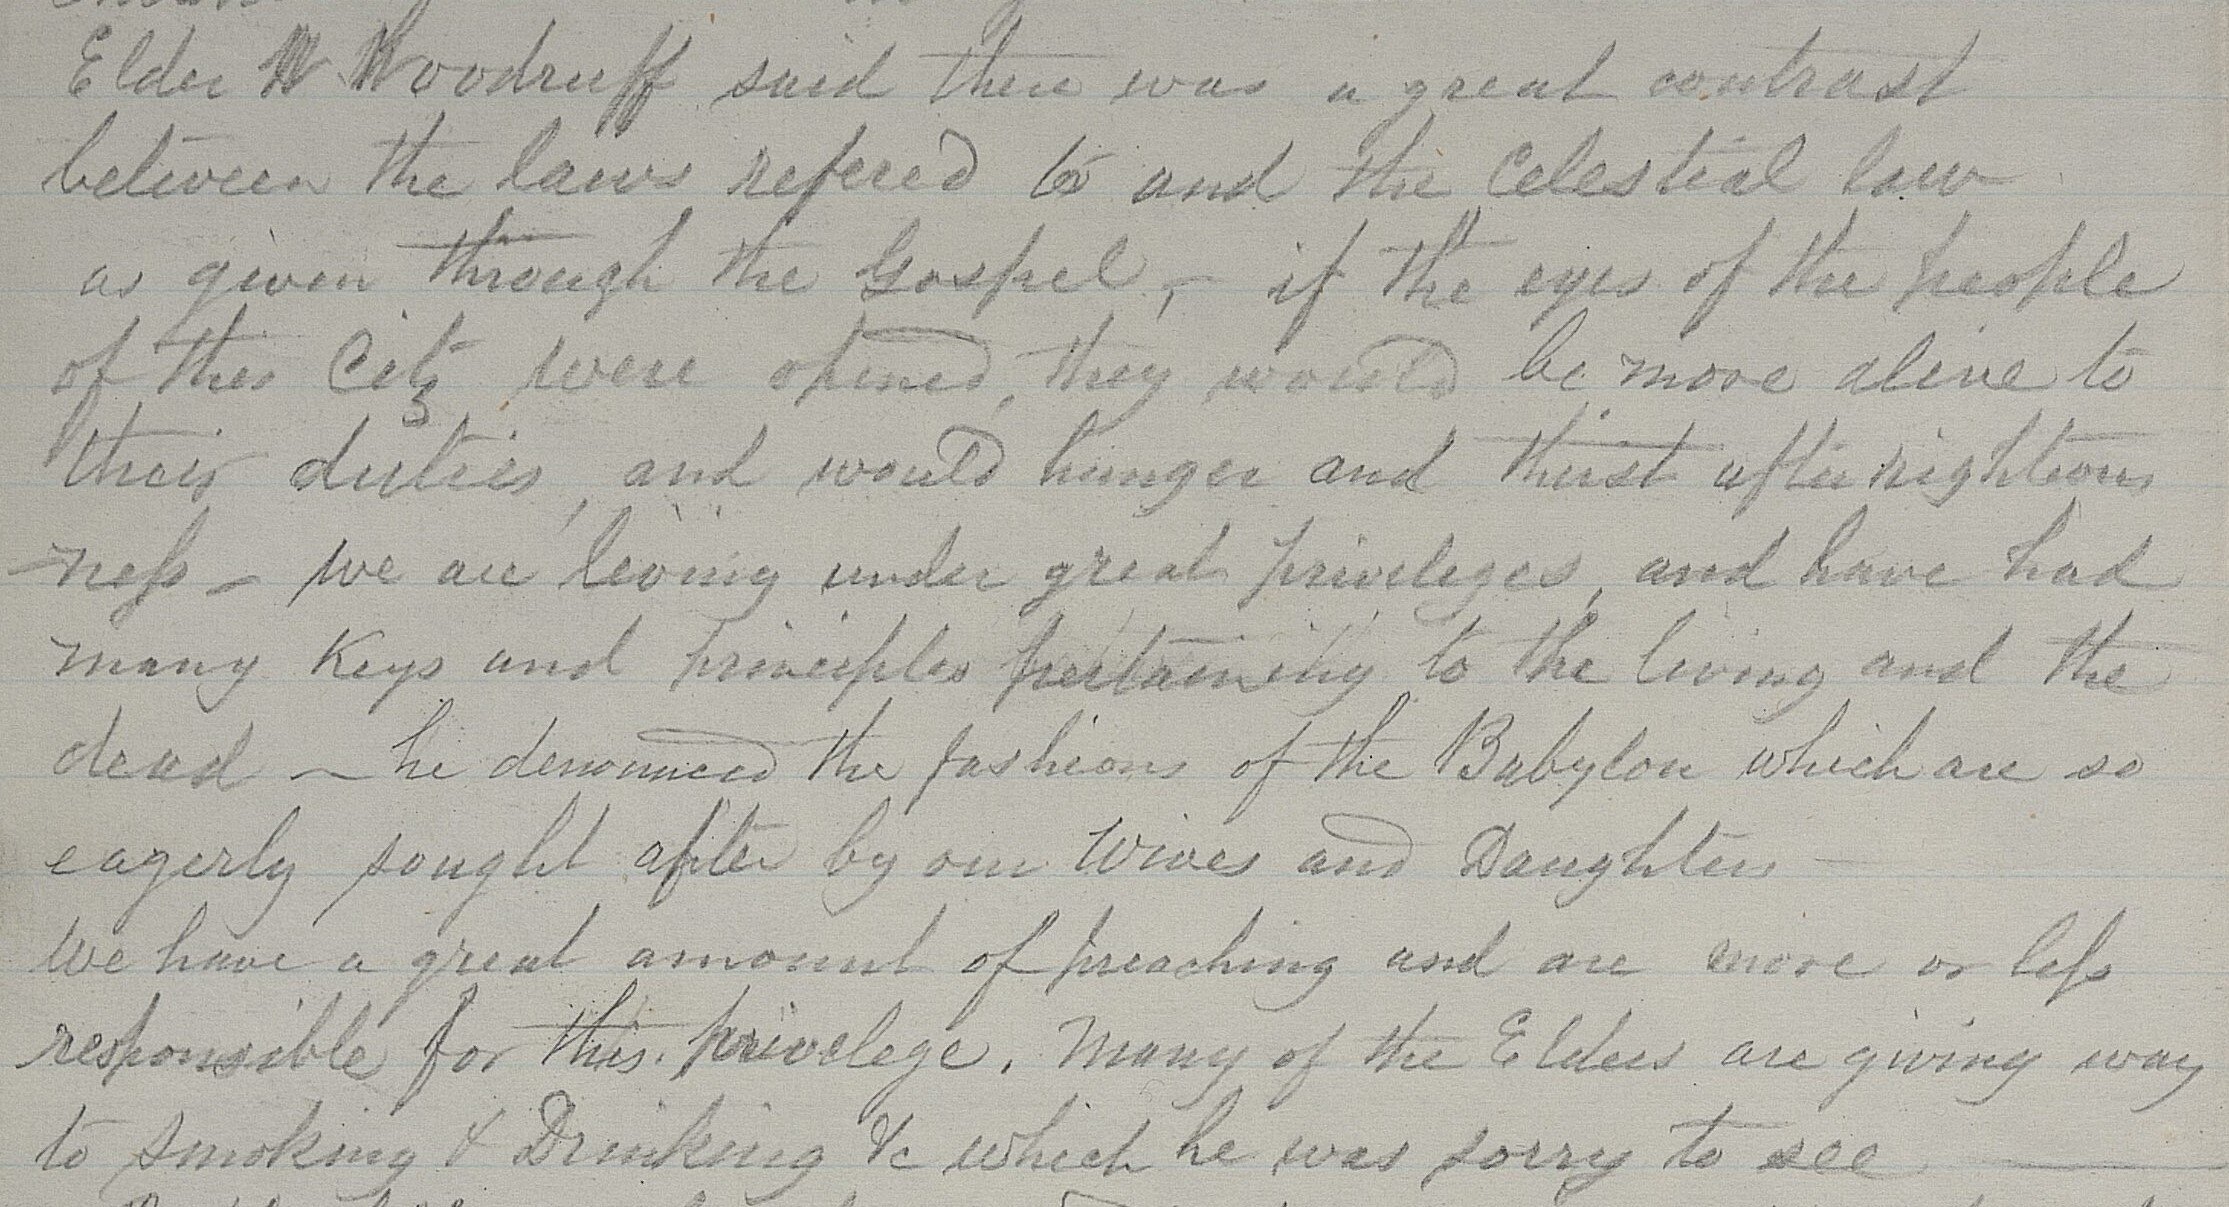 Elder W Woodruff said there was a great contrast
between the laws refered to and the Celestial law
as given through the Gospel, – if the eyes of the people
of this City were opened, they would be more alive to
their duties, and would hunger and thirst after righteous
-ness – we are living under great privileges, and have had
many Keys and principles pertaining to the living and the
dead – he denounced the fashions of the Babylon which are so
eagerly sought after by our Wives and Daughters –
We have a great amount of preaching and are more or less
responsible for this privelege. Many of the Elders are giving way
to smoking & Drinking &c which he was sorry to see —